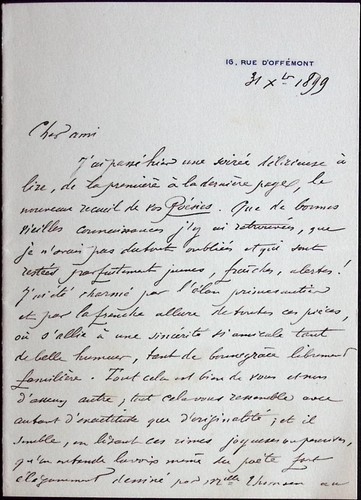 16, RUE D'OFFÉMONT
31 Xbr 1899
Cher ami
J'ai passé hier une soirée délicieuse à
lire, de la première à la dernière page, le
nouveau recueil de vos Poésies. Que de bonnes
vieilles connaissances j'y ai retrouvées, que
je n'avais pas du tout oubliées et qui sont
restées parfaitement jeunes, fraîches, alertes!
J'ai été charmé par l'élan primesautier
et par la fraîche allure de toutes ces pièces,
où s'allie à une sincérité si amicale tant
de belle humeur, tant de bonne grâce librement
familière. Tout cela est bien de vous et non
d'aucun autre, tout cela vous ressemble avec
autant d'exactitude que d'originalité; et il
semble, en lisant ces rimes joyeuses ou pensives,
qu'on entende la voix même du poète fort
élégamment dessiné par Mlle Thomson au